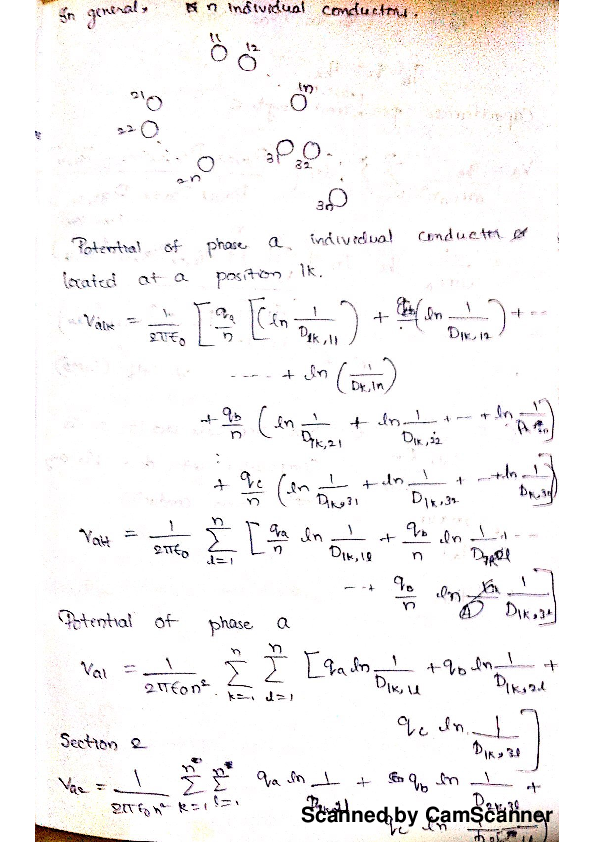 In general, n individual conductors.
11 12
1n
21
22
2n
31 32
3n
Potential of phase a individual conductor
located at a position 1k.
Va1k = 1/2πε0 [ qa/n [ (ln 1/D1k,11) + (ln 1/D1k,12) + ...
---- + ln (1/Dk,1n)
+ qb/n (ln 1/D1k,21 + ln 1/D1k,22 + ... + ln
+ qc/n (ln 1/D1k,31 + ln 1/D1k,32 + ... + ln 1/Dk,3n)]
= 1/2πε0 Σ(l=1 to n) [ qa/n ln 1/D1k,1l + qb/n ln
--+ qb/n ln 1/D1k,3l ]
Potential of phase a
Va1 = 1/2πε0n² Σ(k=1 to n) Σ(l=1 to n) [ qa ln 1/D1k,1l + qb ln 1/D1k,2l +
qc ln 1/D1k,3l ]
Section 2
Va2 = 1/2πε0n² Σ(k=1 to n) Σ(l=1 to n) qa ln + qb ln 1/D2k,3l +
qc ln
Scanned by CamScanner